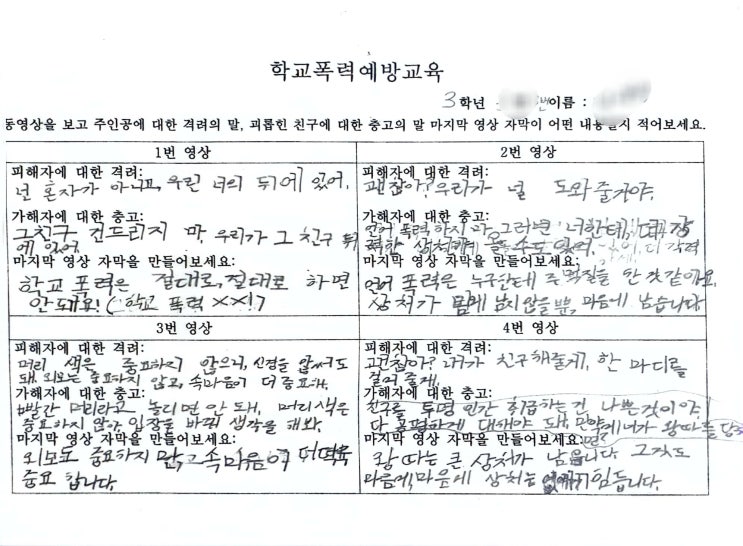 학교폭력예방교육
3학년 번이름 :
동영상을 보고 주인공에 대한 격려의 말, 괴롭힌 친구에 대한 충고의 말 마지막 영상 자막이 어떤 내용일지 적어보세요.
1번 영상
피해자에 대한 격려:
넌 혼자가 아니고, 우린 너의 뒤에 있어.
가해자에 대한 충고:
그 친구 건드리지 마, 우리가 그 친구 뒤
에 있어.
마지막 영상 자막을 만들어보세요:
학교 폭력은 절대로, 절대로 하면
안돼요! (학교 폭력 XX!)
2번 영상
피해자에 대한 격려:
괜찮아? 우리가 널 도와줄거야.
가해자에 대한 충고:
언어 폭력 하지 마, 그러면 너한테, 더 강
력한 상처에게 수도 있어.
마지막 영상 자막을 만들어보세요:
언어 폭력은 누구한테 주먹질을 한 것 같아요.
상처가 몸에 남지 않을 뿐, 마음에 남습니다.
3번 영상
피해자에 대한 격려:
머리 색은 중요하지 않으니, 신경을 안써도
돼. 외모는 중요하지 않고, 속마음이 더 중요해.
가해자에 대한 충고:
빨간 머리라고 놀리면 안 돼, 머리색은
중요하지 않아 입장을 바꿔 생각을 해봐.
마지막 영상 자막을 만들어보세요:
외모도 중요하지만, 속마음이 더더욱
중요 합니다.
4번 영상
피해자에 대한 격려:
괜찮아? 내가 친구해줄게, 한 마디를
걸어 줄게.
가해자에 대한 충고:
친구를 투명 인간 취급하는건 나쁜것이야.
다 공평하게 대해야 돼, 만약에 너가 왕따를 당
마지막 영상 자막을 만들어보세요:
왕따는 큰 상처가 남습니다 그것도
마음에, 마음에 상처는 힘듭니다.